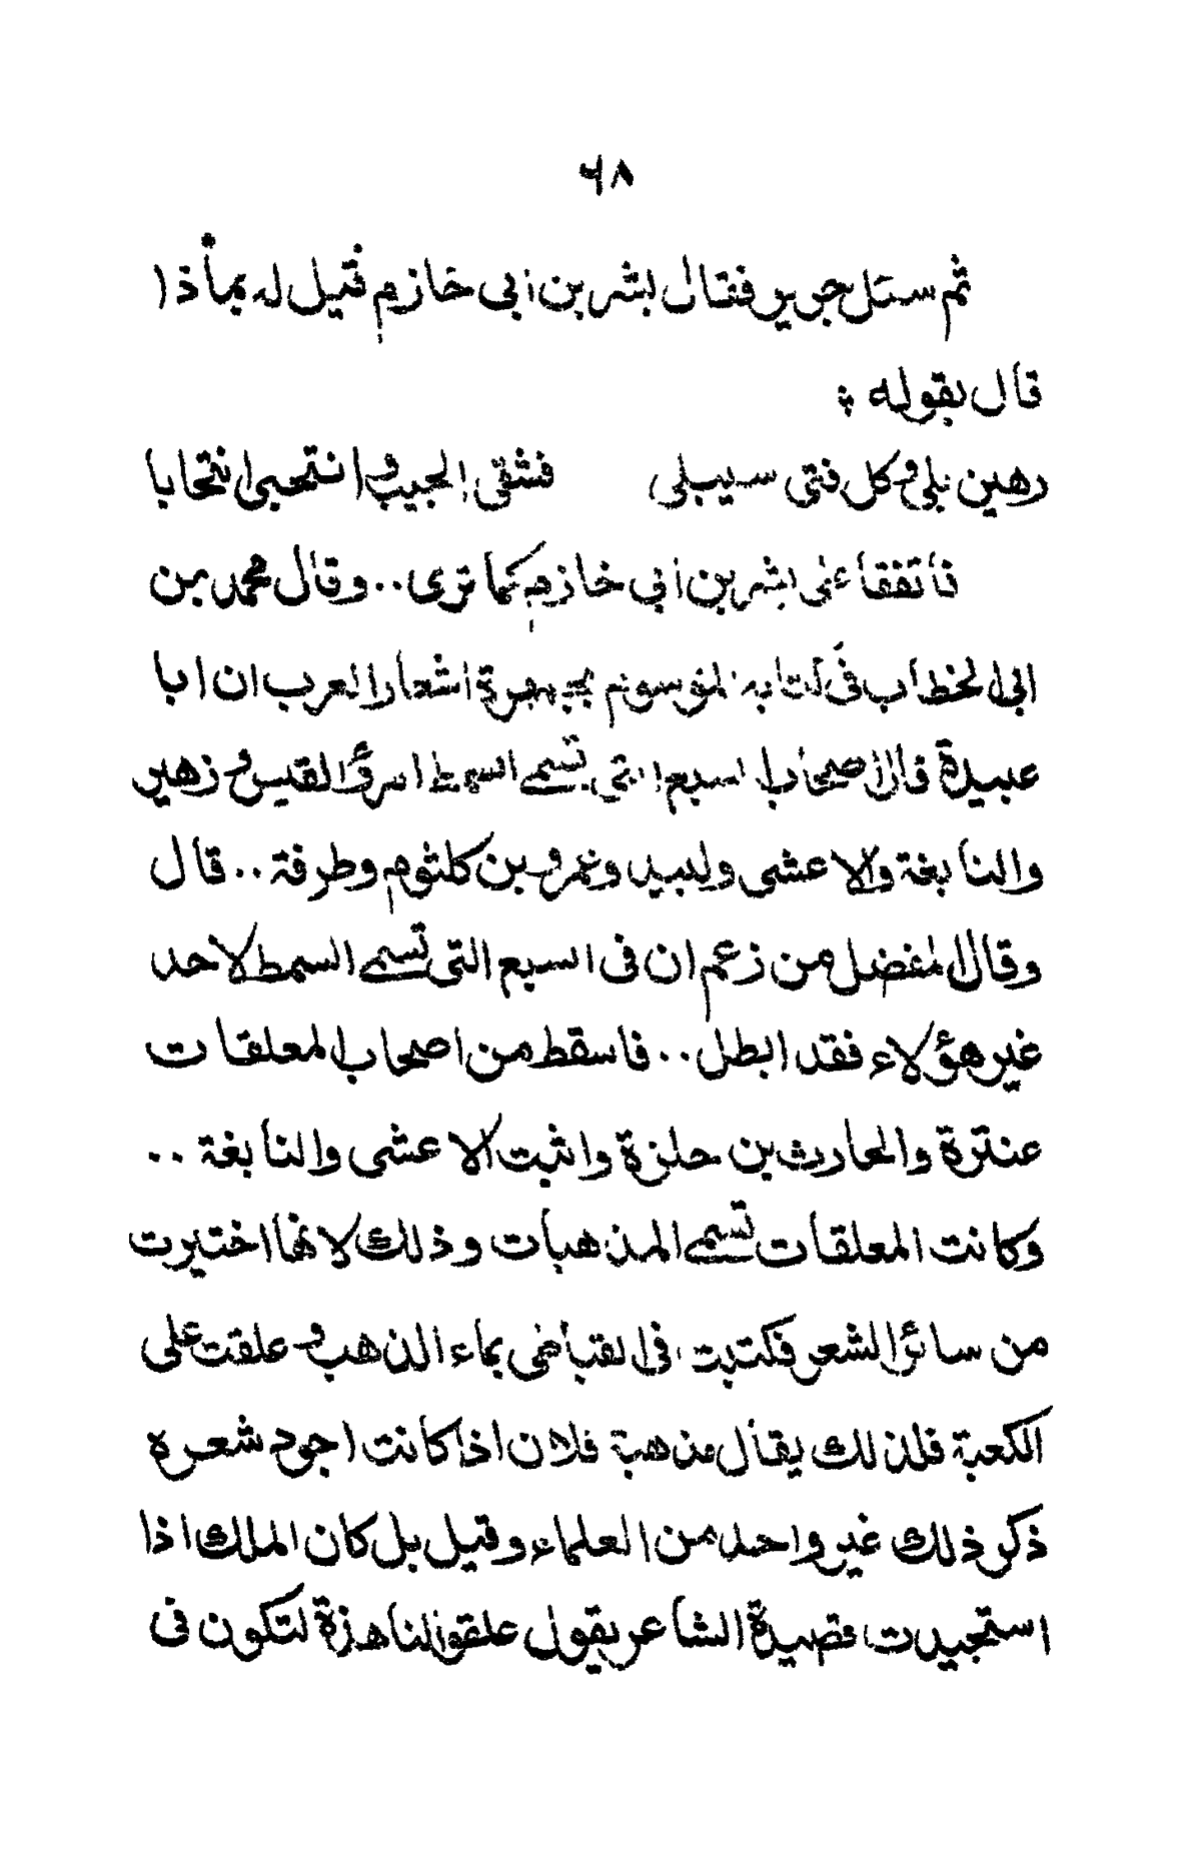 ٦٨
ثم سئل جرير فقال بشر بن ابى خازم فقيل له بماذا
قال بقوله :
رهين بلى وكل فتى سيبلى فشقى الجيب وانتحبى انتحابا
فاتفقا على بشر بن ابى خازم كما ترى .. وقال محمد بن
ابى الخطاب فى كتابه الموسوم بجمهرة اشعار العرب ان ابا
عبيدة قال اصحاب السبع التى تسمى السمط امرؤ القيس وزهير
والنابغة والاعشى ولبيد وعمرو بن كلثوم وطرفة .. قال
وقال المفضل من زعم ان فى السبع التى تسمى السمط لاحد
غير هؤلاء فقد ابطل .. فاسقط من اصحاب المعلقات
عنترة والحارث بن حلزة واثبت الاعشى والنابغة ..
وكانت المعلقات تسمى المذهبات وذلك لانها اختيرت
من سائر الشعر فكتبت فى القباطى بماء الذهب وعلقت على
الكعبة فلذلك يقال مذهبة فلان اذا كانت اجود شعره
ذكر ذلك غير واحد من العلماء وقيل بل كان الملك اذا
استجيدت قصيدة الشاعر يقول علقوا لنا هذة لتكون فى